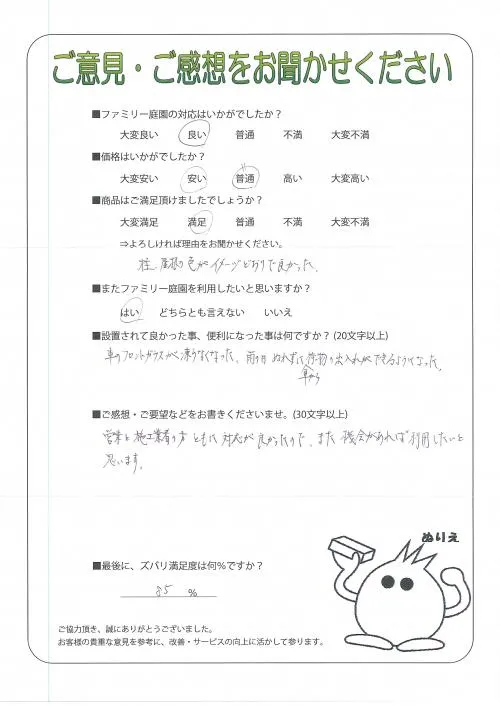 ご意見・ご感想をお聞かせください
■ファミリー庭園の対応はいかがでしたか？
大変良い 良い 普通 不満 大変不満
■価格はいかがでしたか？
大変安い 安い 普通 高い 大変高い
■商品はご満足頂けましたでしょうか？
大変満足 満足 普通 不満 大変不満
⇒よろしければ理由をお聞かせください。
柱、屋根の色がイメージどおりで良かった。
■またファミリー庭園を利用したいと思いますか？
はい どちらとも言えない いいえ
■設置されて良かった事、便利になった事は何ですか？(20文字以上)
車のフロントガラスが凍らなくなった。雨の日 ぬれずに荷物の出入れができるようになった。
車から
■ご感想・ご要望などをお書きくださいませ。(30文字以上)
営業と施工業者の方 ともに 対応が良かったので、また 機会があれば利用したいと
思います。
ぬりえ
■最後に、ズバリ満足度は何％ですか？
85 %
ご協力頂き、誠にありがとうございました。
お客様の貴重な意見を参考に、改善・サービスの向上に活かして参ります。